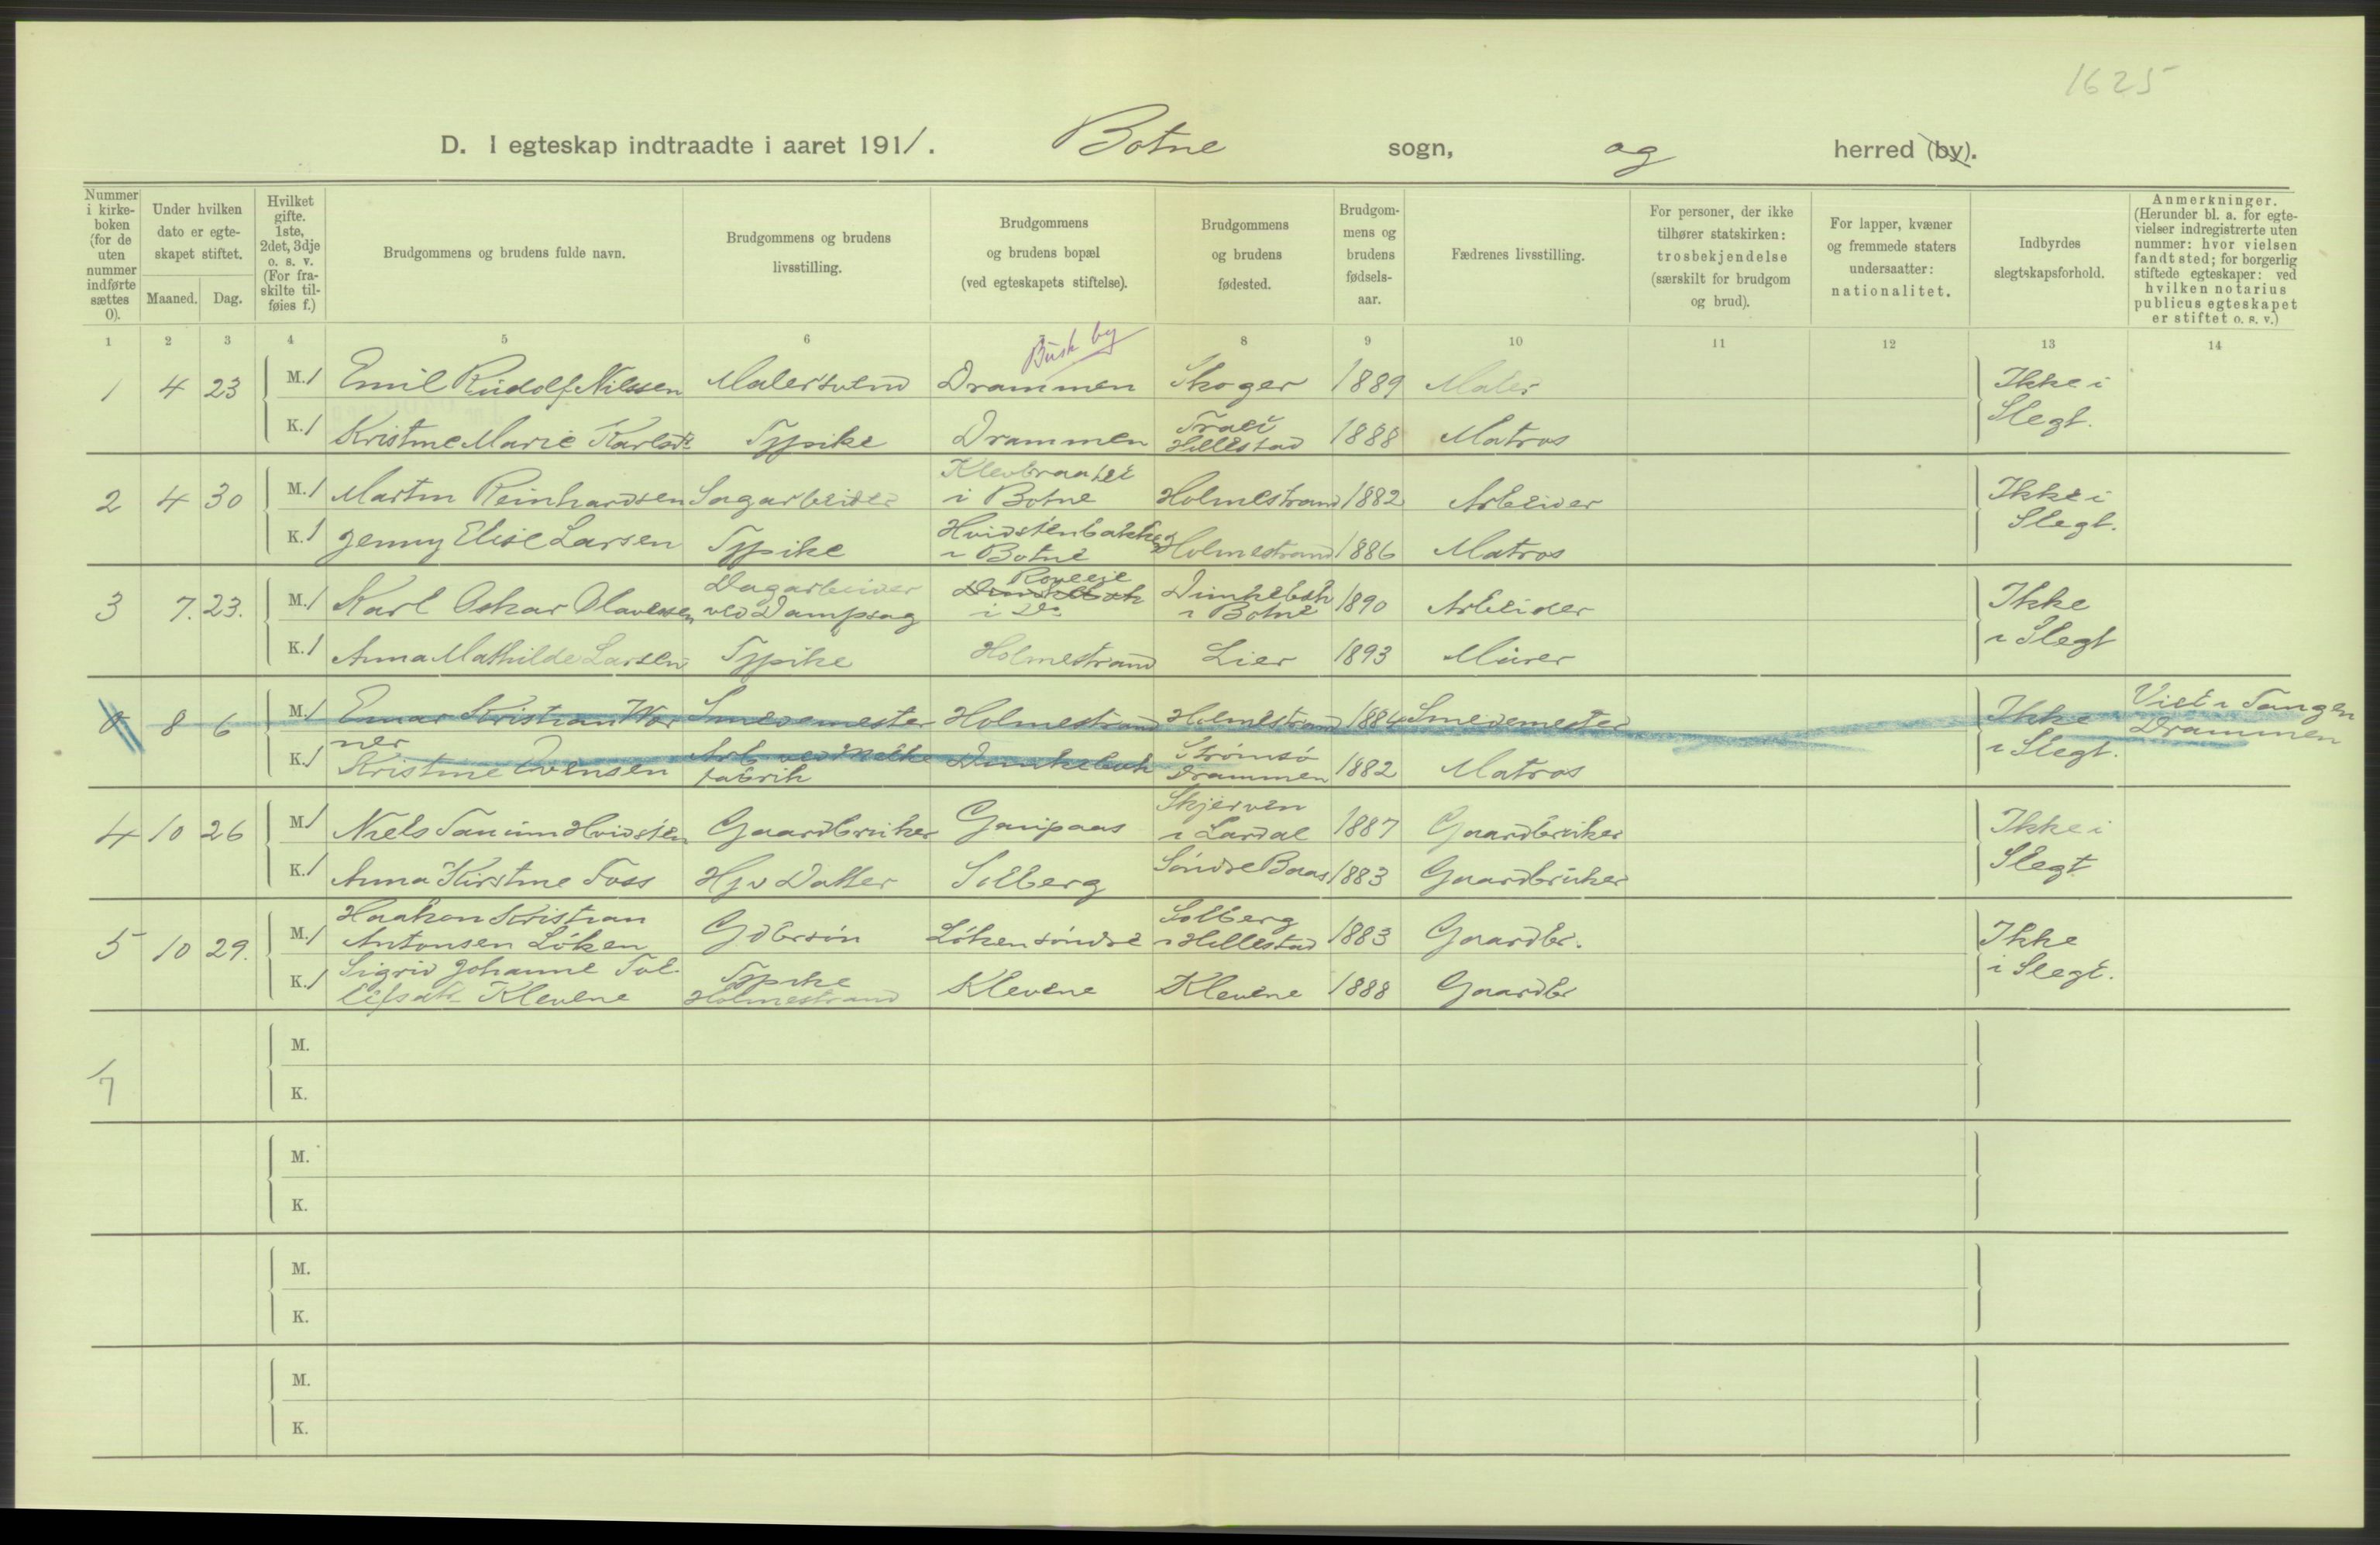 1625
D. I egteskap indtraadte i aaret 1911. Botne sogn, og herred (by).
Nummer i kirke- boken (for de uten nummer indførte sættes 0).
Under hvilken dato er egte- skapet stiftet.
Maaned. Dag.
Hvilket gifte. 1ste, 2det, 3dje o. s. v. (For fra- skilte til- føies f.)
Brudgommens og brudens fulde navn.
Brudgommens og brudens livsstilling.
Brudgommens og brudens bopæl (ved egteskapets stiftelse).
Brudgommens og brudens fødested.
Brudgom- mens og brudens fødsels- aar.
Fædrenes livsstilling.
For personer, der ikke tilhører statskirken: trosbekjendelse (særskilt for brudgom og brud).
For lapper, kvæner og fremmede staters undersaatter: nationalitet.
Indbyrdes slegtskapsforhold.
Anmerkninger. (Herunder bl. a. for egte- vielser indregistrerte uten nummer: hvor vielsen fandt sted; for borgerlig stiftede egteskaper: ved hvilken notarius publicus egteskapet er stiftet o. s. v.)
1 2 3 4 5 6 8 9 10 11 12 13 14
Busk by
1 4 23 M. 1 Emil Rudolf Nilssen Malersvend Drammen Skoger 1889 Maler Ikke i Slegt.
K. 1 Kristine Marie Karlsdr Tjpike Drammen Hillestad 1888 Matros
2 4 30 M. 1 Martin Reinhardsen Sagarbeider Klevbraatet i Botne Holmestrand 1882 Arbeider Ikke i Slegt.
K. 1 Jenny Elise Larsen Tjpike Hvidstenbakken i Botne Holmestrand 1886 Matros
3 7. 23. M. 1 Karl Oskar Olavessen Dagarbeider ved Dampsag i Do Dunkebek i Botne 1890 Arbeider Ikke i Slegt
K. 1 Anna Mathilde Larsen Tjpike Holmestrand Lier 1893 Murer
0 8 6 M. 1 Einar Kristian Wor ner Smedemester Holmestrand Holmestrand 1884 Smedemester Ikke i Slegt. Viet i Tangen Drammen
K. 1 Kristine Evensen Arb. ved Melke fabrik Dunkebek Strømsø Drammen 1882 Matros
4 10 26 M. 1 Niels Tanum Hvidsten Gaardbruker Gripaas Skjerven i Lardal 1887 Gaardbruker Ikke i Slegt
K. 1 Anna Kirstine Foss Hjv Datter Solberg Søndre Baas 1883 Gaardbruker
5 10 29. M. 1 Haakon Kristian Antonsen Løken Gdbrsøn Løken søndre Solberg i Hillestad 1883 Gaardbr. Ikke i Slegt.
K. 1 Sigrid Johanne Tol lefsdtr Klevene Tjpike Holmestrand Klevene Klevene 1888 Gaardbr
M.
K.
M.
K.
M.
K.
M.
K.